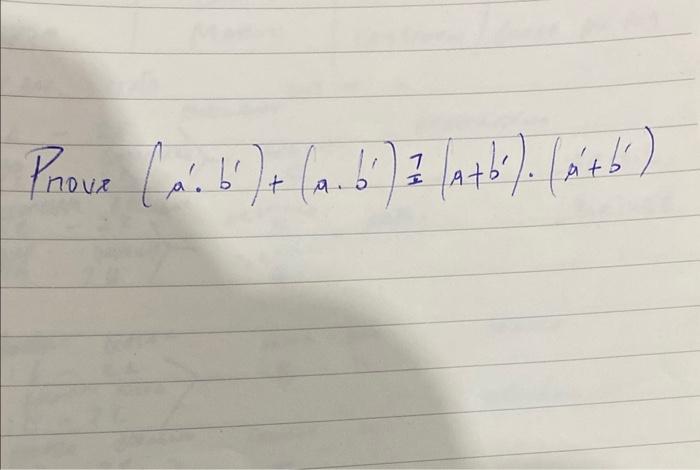 Prove (a'. b') + (a. b') ?= (a+b'). (a'+b')